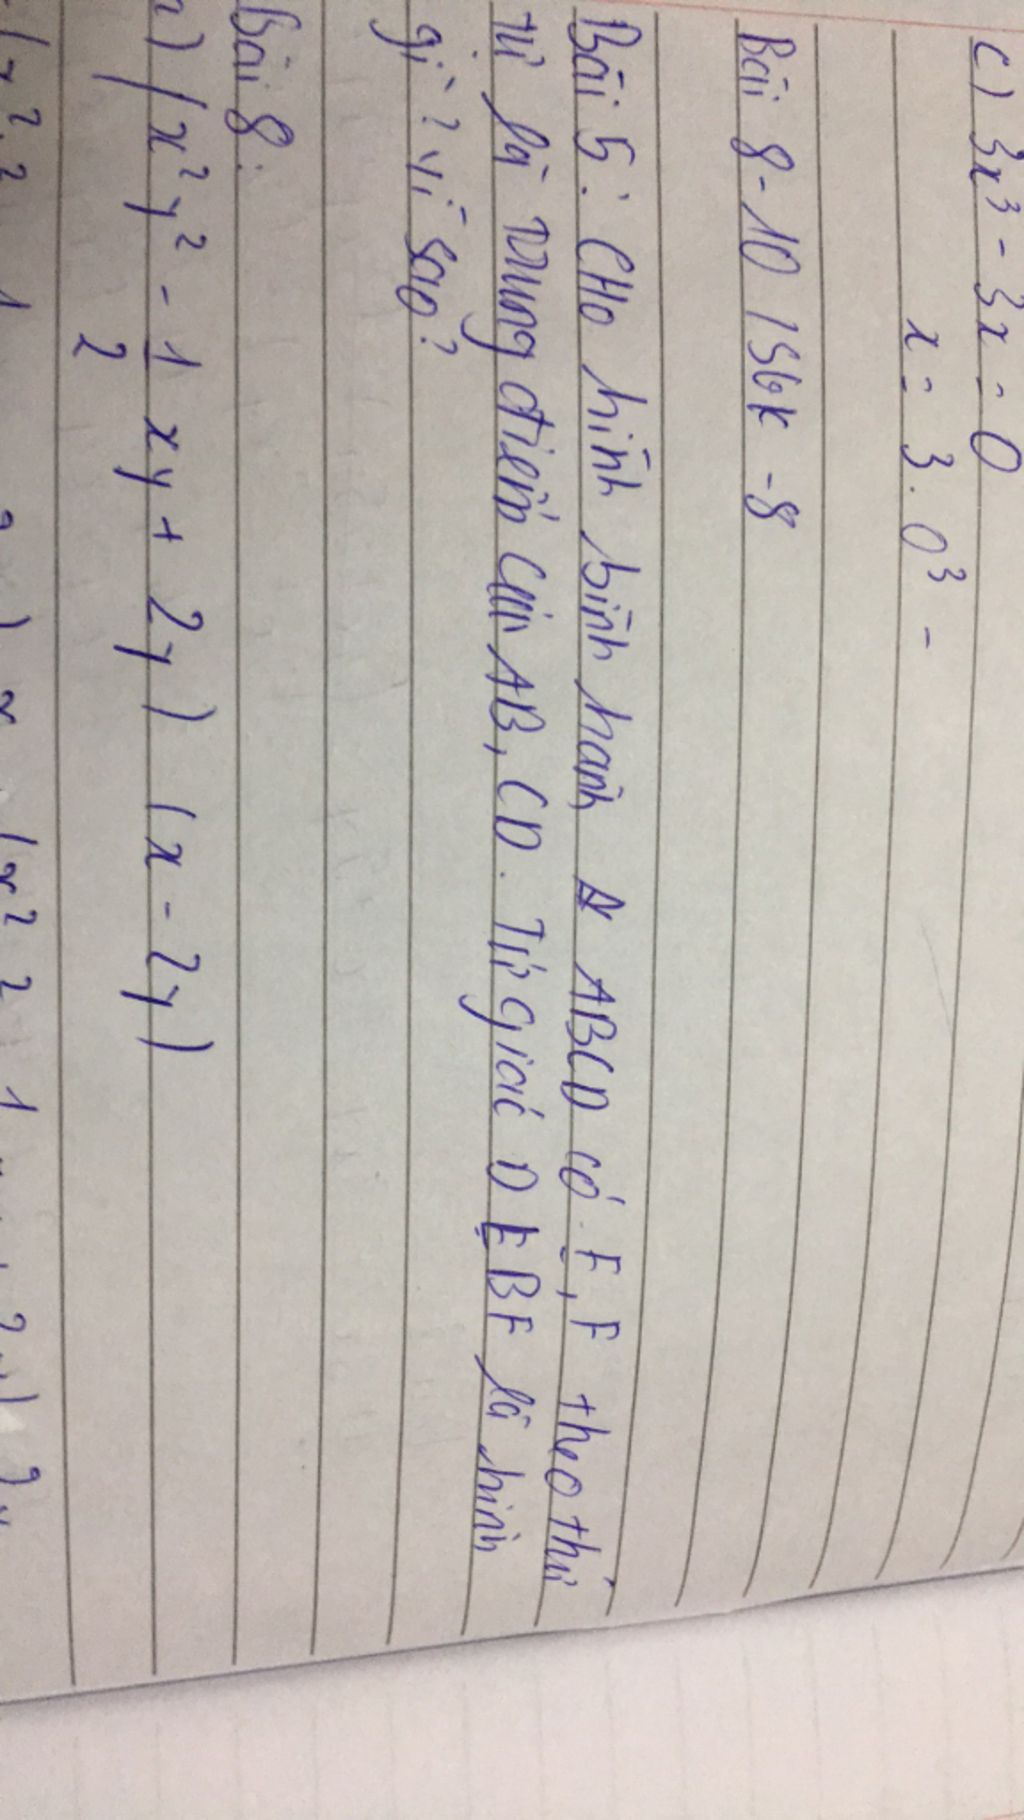 c) 3x³ - 3x = 0
x = 3 . 0³ -
Bài 8-10 / SGK - 8
Bài 5 : CHo hình bình hành ABCD có E, F theo thứ
tự là trung điểm của AB, CD. Tứ giác DEBF là hình
gì ? vì sao ?
Bài 8 :
a) (x²y² - 1/2 xy + 2y) (x - 2y)